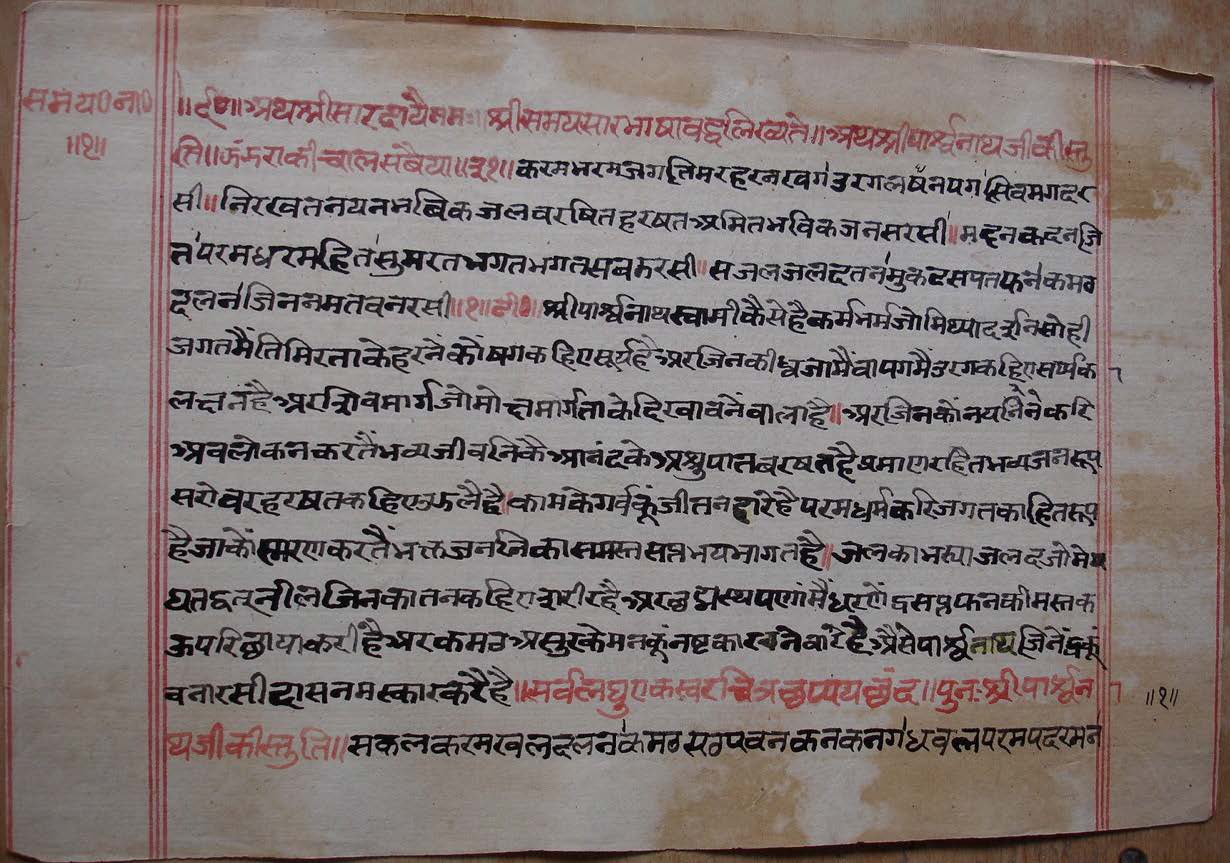 समय० ना०
॥१॥
॥र्द०॥ अथ श्री सारदायै नमः ॥ श्री समयसार भाषा वद्ध लिख्यते ॥ अथ श्री पार्श्वनाथ जी की स्तु
ति ॥ ऊंऊरा की चाल सवैया ॥३१॥ करम भरम जग तिमर हरन खगं उरग लषन पग सिव मग दर
सी ॥ निरखत नयन भबिक जल वरषित हरषत अमित भविक जन सरसी ॥ मदन कदन जि
तं परम धरम हितं सुमरत भगत भगत सव मरसी ॥ सजल जलद तनं मुकट सपत फनं कमठ
दलनं जिन नमत वनरसी ॥१॥ टी० ॥ श्री पार्श्वनाथ स्वामी कैसे है कर्म भर्म जो मिथ्यादर्शन सोही
जगत मैं तिमिर ता के हरनें कौं षग कहिए सूर्य है अर जिन की ध्वजा मै वा पग मै उरग कहिए सर्प्प क
लक्षन है अर शिव मार्ग जो मोक्ष मार्ग ता के दिखावनें वाला है ॥ अर जिन कौं नय ननि करि
अवलोकन करतैं भव्य जीवनि कै आनंद के अश्रुपात बरषत है प्रमाण रहित भव्य जन रूप
सरोवर हरषत कहिए उछलै है । काम के गर्व कूं जीतन हारे है परम धर्म करि जगत का हित रूप
है जा कौं स्मरण करतैं भक्त जननि का समस्त सप्त भय भागत है ॥ जल का भस्या जलद जो मेघ
घत द्वत् नील जिन का तन कहिए शरीर है अर छद्मस्थ पणां मैं धरणेंद्र सप्त फन की मस्तक
ऊपरि छाया करी है अर कमठ असुर के मन कूं नष्ट कार वने वारे है अैसे पार्श्वनाथ जिनेंद्र कूं
वनारसीदास नमस्कार करै है ॥ सर्व लघु एक स्वर चित्र छप्पय छंद ॥ पुनः श्री पार्श्वना
थ जी की स्तुति ॥ सकल करम खल दलनं कमठ सठ पवन कनक नगं धवल परम पद रमन
॥१॥